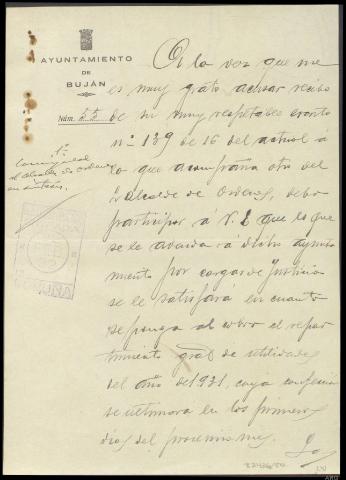 AYUNTAMIENTO
DE
BUJÁN
Núm. 55
A la vez que me
es muy grato acusar recibo
de su muy respetable escrito
nº 139 de 16 del actual á
lo que acompaña otro del
Alcalde de Ordenes, debo
participar á V. E que lo que
se le adeuda a dicho ayunta
miento por cargas de Justicia
se le satisfará en cuanto
se ponga al cobro el repar
timiento gral de utilidades
del año de 1931, cuya confección
se ultimara en los primeros
dias del proximo mes.
al alcalde de Ordenes
CORUÑA